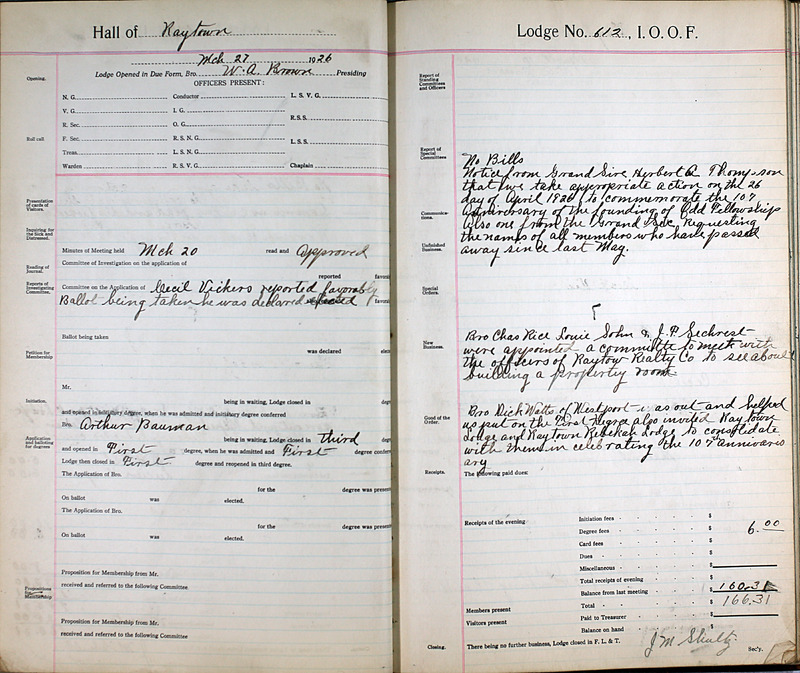 Hall of Raytown
Mch 27 1926
Opening.
Lodge Opened in Due Form, Bro. W. A. Brown Presiding
OFFICERS PRESENT:
N. G. Conductor L. S. V. G.
V. G. I. G.
R. Sec. O. G. R.S.S.
Roll call.
F. Sec. R. S. N. G.
Treas. L. S. N. G. L.S.S.
Warden R. S. V. G. Chaplain
Presentation of cards of Visitors.
Inquiring for the Sick and Distressed.
Minutes of Meeting held Mch 20 read and approved
Reading of Journal.
Committee of Investigation on the application of
reported favor
Reports of Investigating Committee.
Committee on the Application of Cecil Vickers reported favorably
Ballot being taken he was declared elected
Ballot being taken
was declared elec
Petition for Membership
Mr.
Initiation.
being in waiting, Lodge closed in deg
and opened in initiatory degree, when he was admitted and initiatory degree conferred
Bro. Arthur Bauman
Application and balloting for degrees
being in waiting, Lodge closed in Third deg
and opened in First degree, when he was admitted and First degree confer
Lodge then closed in First degree and reopened in third degree.
The Application of Bro.
for the degree was presen
On ballot was elected.
The Application of Bro.
for the degree was presen
On ballot was elected.
Propositions for Membership
Proposition for Membership from Mr.
received and referred to the following Committee
Proposition for Membership from Mr.
received and referred to the following Committee
Lodge No. 612, I. O. O. F.
Report of Standing Committees and Officers
Report of Special Committees
No Bills
Notice from Grand Sire Herbert A Thompson
that we take appropriate action on the 26
day of April 1926 to commemorate the 107
Communications.
anniversary of the founding of Odd Fellowship
also one from the Grand Sec. requesting
Unfinished Business.
the names of all members who have passed
away since last May.
Special Orders.
New Business.
Bro Chas Rice Louie Sohn & J. P. Sechrest
were appointed a committee to meet with
the officers of Raytow Realty Co to see about
building a property room.
Good of the Order.
Bro Dick Watts of Westport was out and helped
us put on the First Degree also invited Raytown
Lodge and Raytown Rebekah Lodge to consolidate
with them in celebrating the 107th annivares
ary
Receipts.
The following paid dues:
Receipts of the evening
Initiation fees $
Degree fees $ 6.00
Card fees $
Dues $
Miscellaneous $
Total receipts of evening $
Balance from last meeting $ 160.31
Members present
Total $ 166.31
Visitors present
Paid to Treasurer $
Balance on hand $
Closing.
There being no further business, Lodge closed in F. L. & T.
J M Shultz Sec'y.